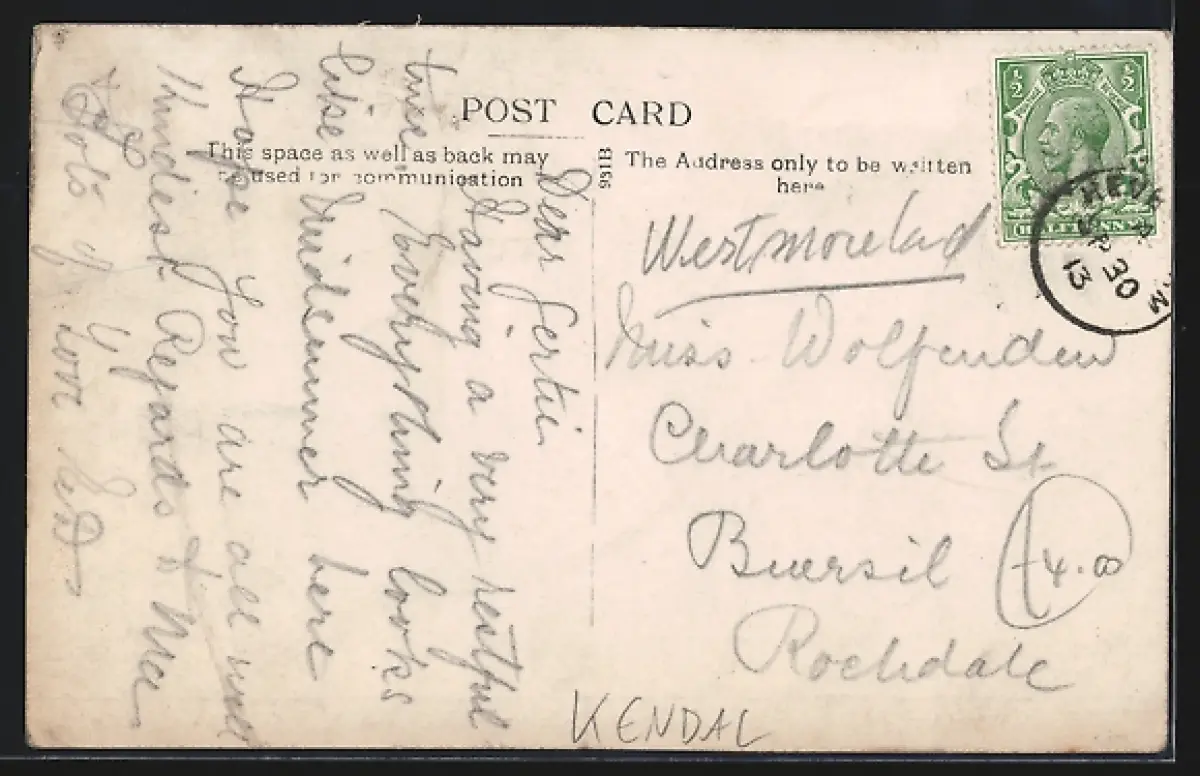 POST CARD
This space as well as back may
be used for communication
931B
The Address only to be written
here
½ ½
HALFPENNY
30
13
Westmoreland
Miss Wolfenden
Charlotte St
Buersil
Rochdale
4.00
KENDAL
Dear Gertie
Having a very restful
time Everything looks
like Midsummer here
Hope you are all well
Kindest Regards to
Lots of Love